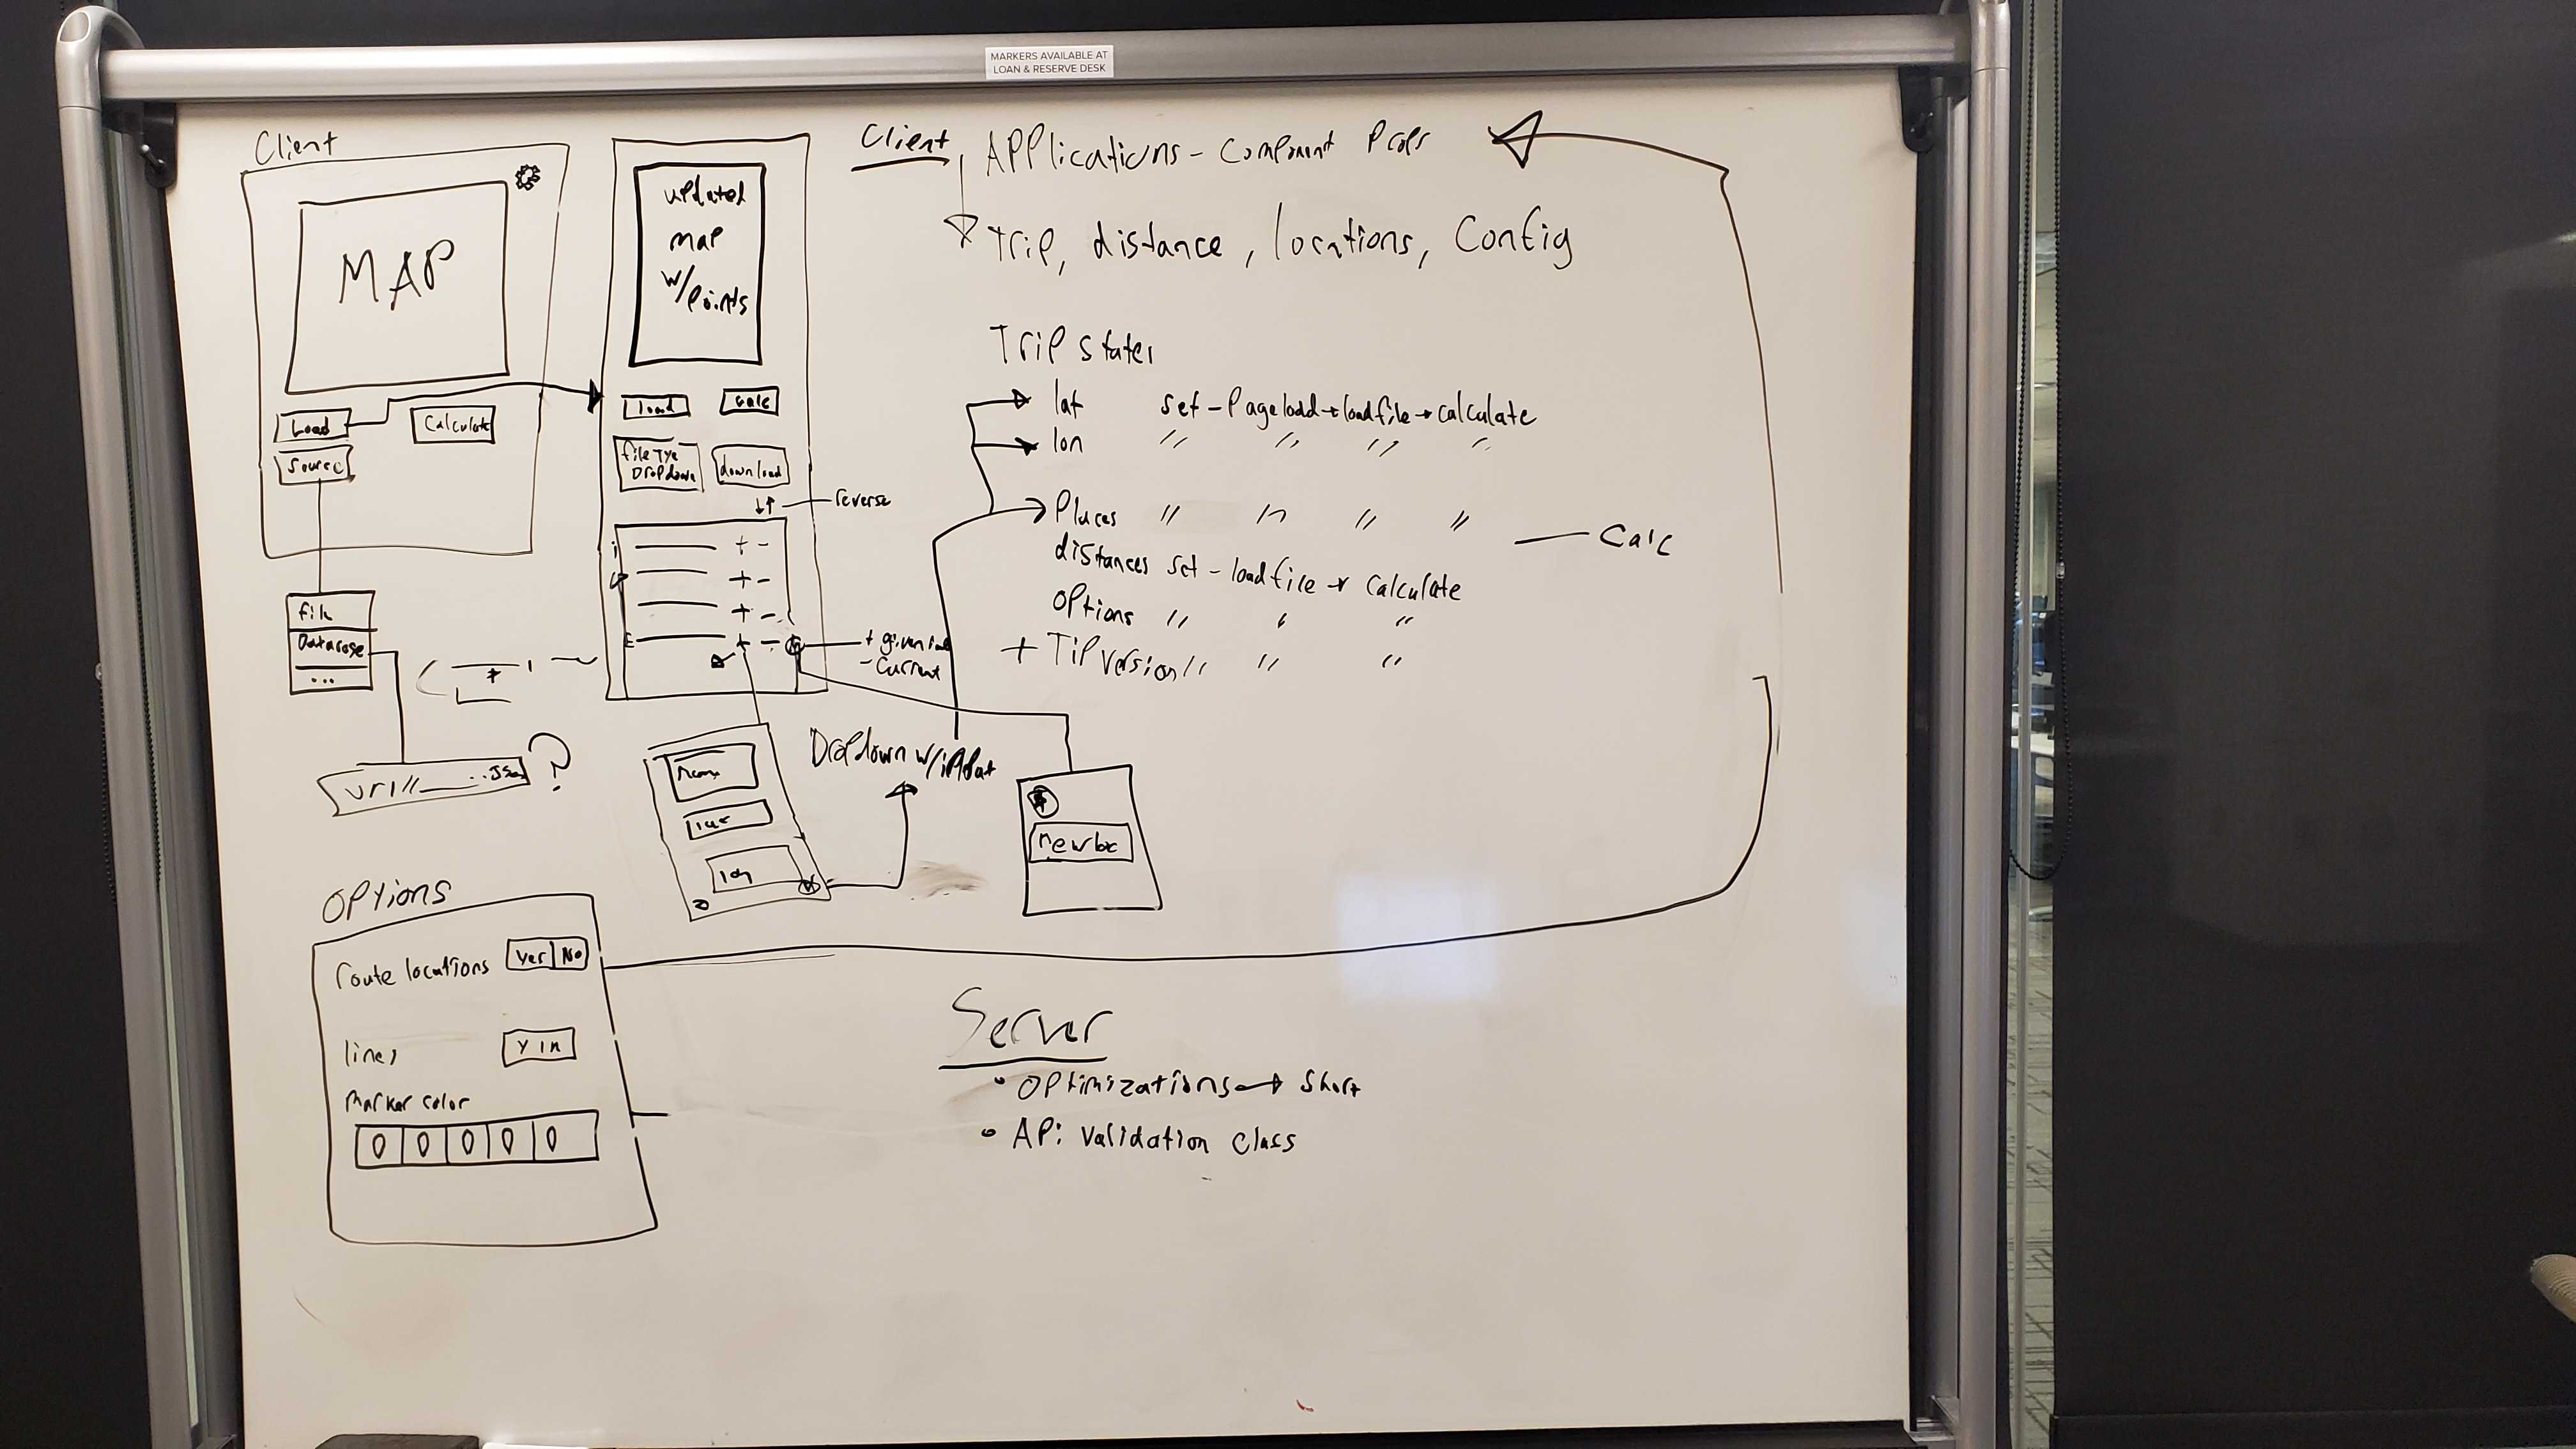 MARKERS AVAILABLE AT
LOAN & RESERVE DESK
Client
MAP
Load
Calculate
Source
file
Database
...
url//____...JSon
?
updated
map
w/points
load
calc
file Tye
Dropdown
download
↓↑ reverse
+ -
+ -
+ -
+ -
+ given
- Current
Name
lat
lon
Dropdown w/
new loc
Client
APPlications - Component Props
Trip, distance, locations, Config
Trip states
lat set - Page load → load file → calculate
lon " " " "
Places " " " "
Calc
distances set - load file → Calculate
Options " " "
+ TiP version " " "
Options
route locations Yes No
lines Y | n
Marker color
0 0 0 0 0
Server
• Optimizations → Short
• APi Validation Class